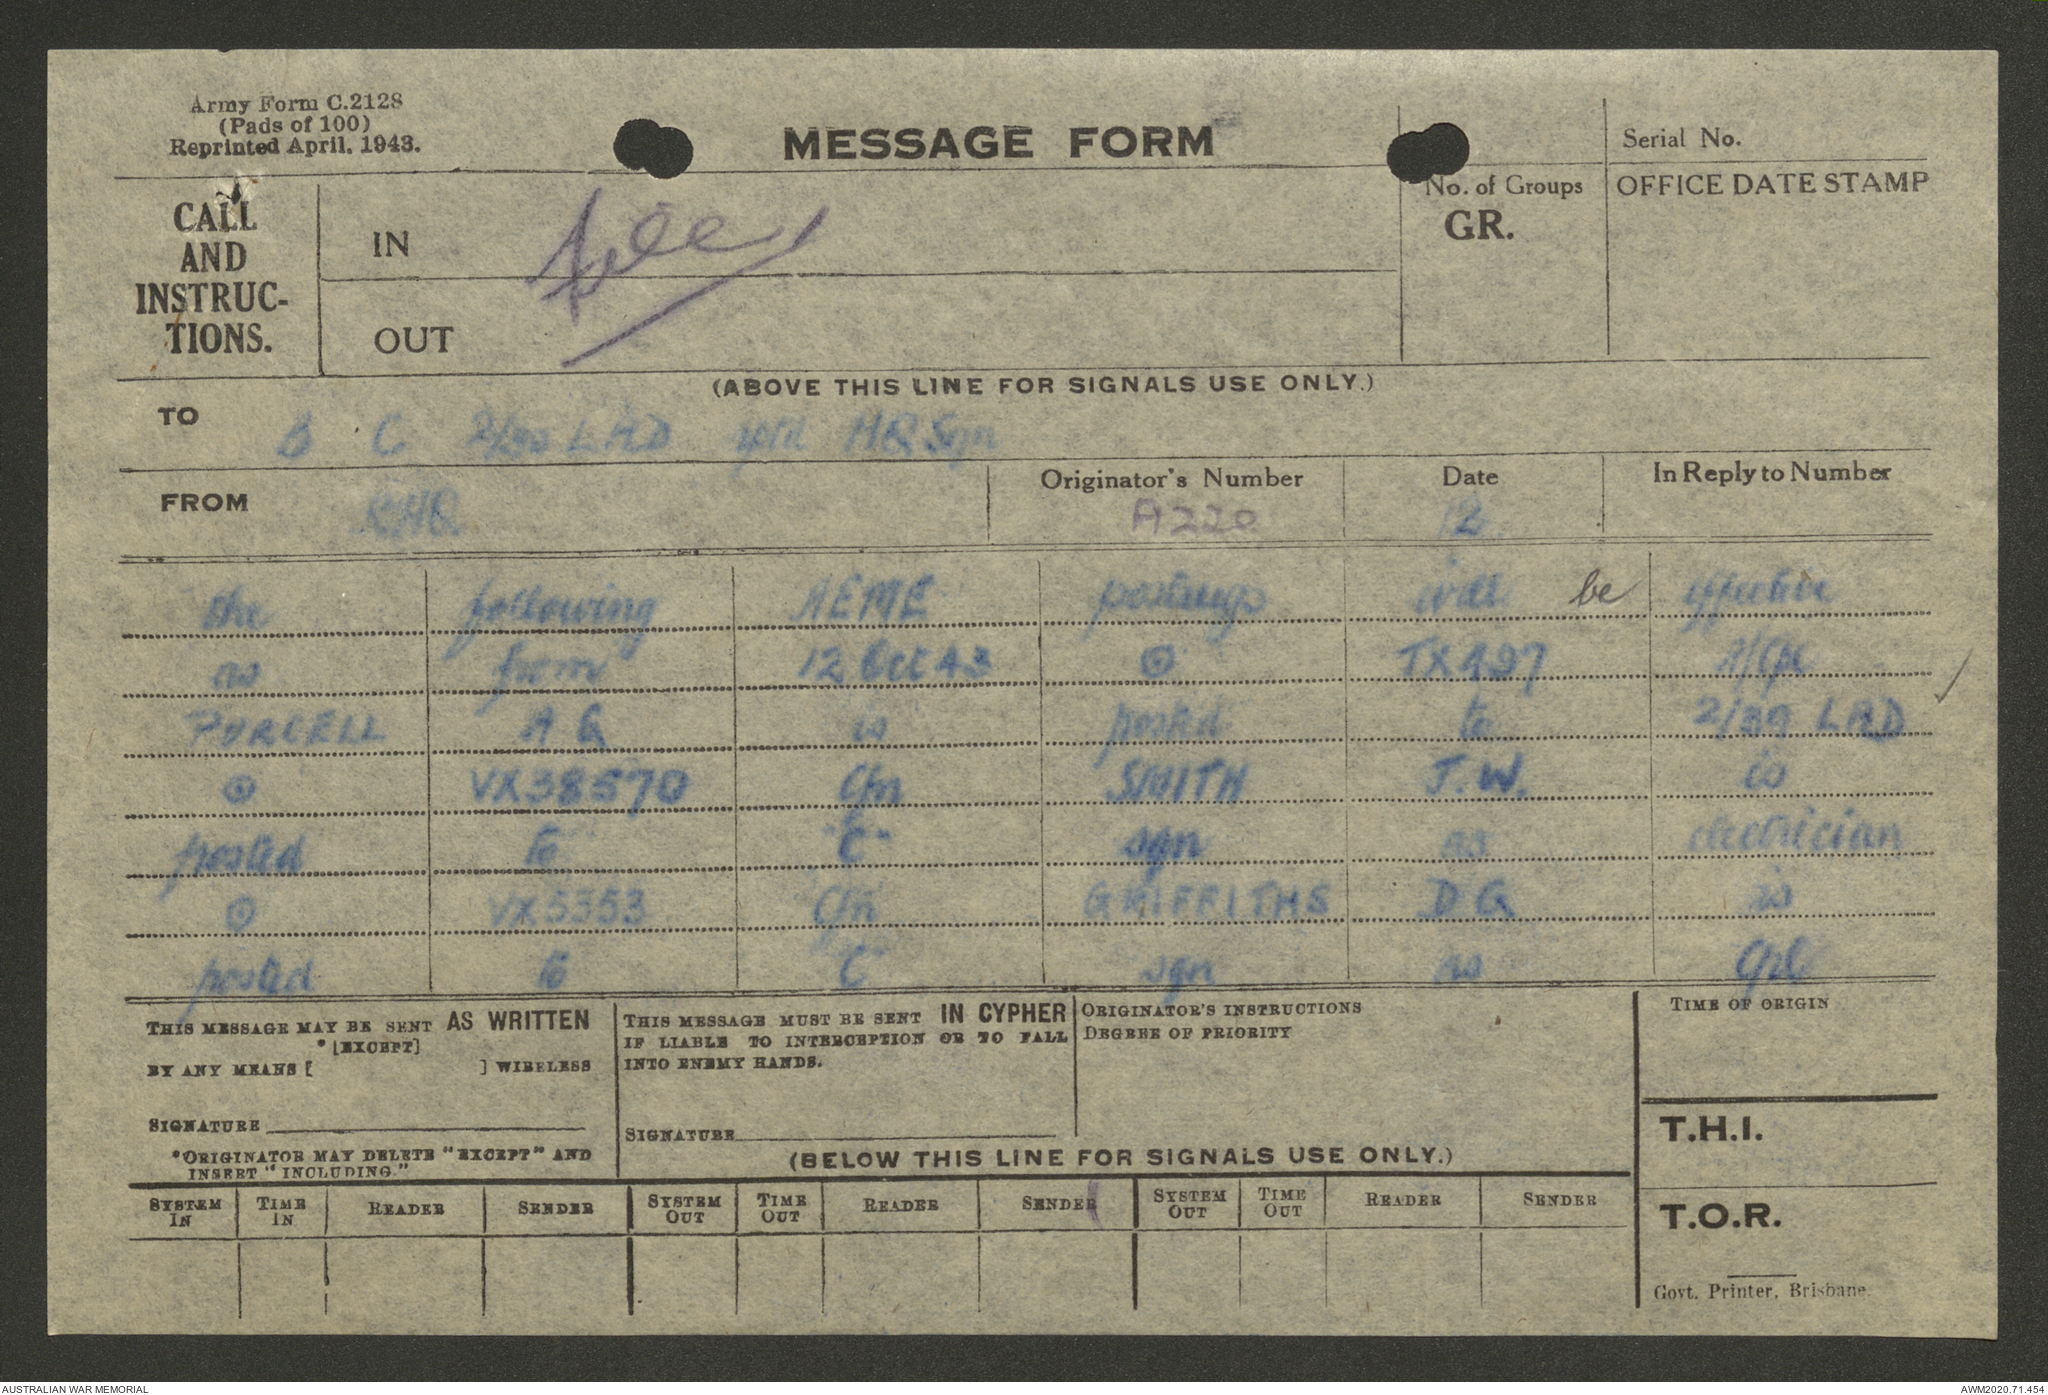 Army Form C.2128
(Pads of 100)
Reprinted April, 1943.
MESSAGE FORM
Serial No.
CALL
AND
INSTRUC-
TIONS.
IN
OUT
No. of Groups
GR.
OFFICE DATE STAMP
(ABOVE THIS LINE FOR SIGNALS USE ONLY.)
TO B C 2/39 LAD HQ Sqn
FROM RHQ
Originator's Number A220
Date 12
In Reply to Number
the following AEME postings will be effective
as from 12 Oct 43 ⊙ TX497 A/Cpl
PURCELL A G is posted to 2/39 LAD ✓
⊙ VX38570 Cfn SMITH J.W. is
posted to "C" sqn as electrician
⊙ VX5353 Cfn GRIFFITHS D G is
posted to "C" sqn as Cpl
THIS MESSAGE MAY BE SENT AS WRITTEN
*[EXCEPT]
BY ANY MEANS [ ] WIRELESS
SIGNATURE
*ORIGINATOR MAY DELETE "EXCEPT" AND
INSERT "INCLUDING."
THIS MESSAGE MUST BE SENT IN CYPHER
IF LIABLE TO INTERCEPTION OR TO FALL
INTO ENEMY HANDS.
SIGNATURE
ORIGINATOR'S INSTRUCTIONS
DEGREE OF PRIORITY
TIME OF ORIGIN
T.H.I.
T.O.R.
(BELOW THIS LINE FOR SIGNALS USE ONLY.)
SYSTEM IN TIME IN READER SENDER SYSTEM OUT TIME OUT READER SENDER SYSTEM OUT TIME OUT READER SENDER
Govt. Printer, Brisbane.
AUSTRALIAN WAR MEMORIAL
AWM2020.71.454